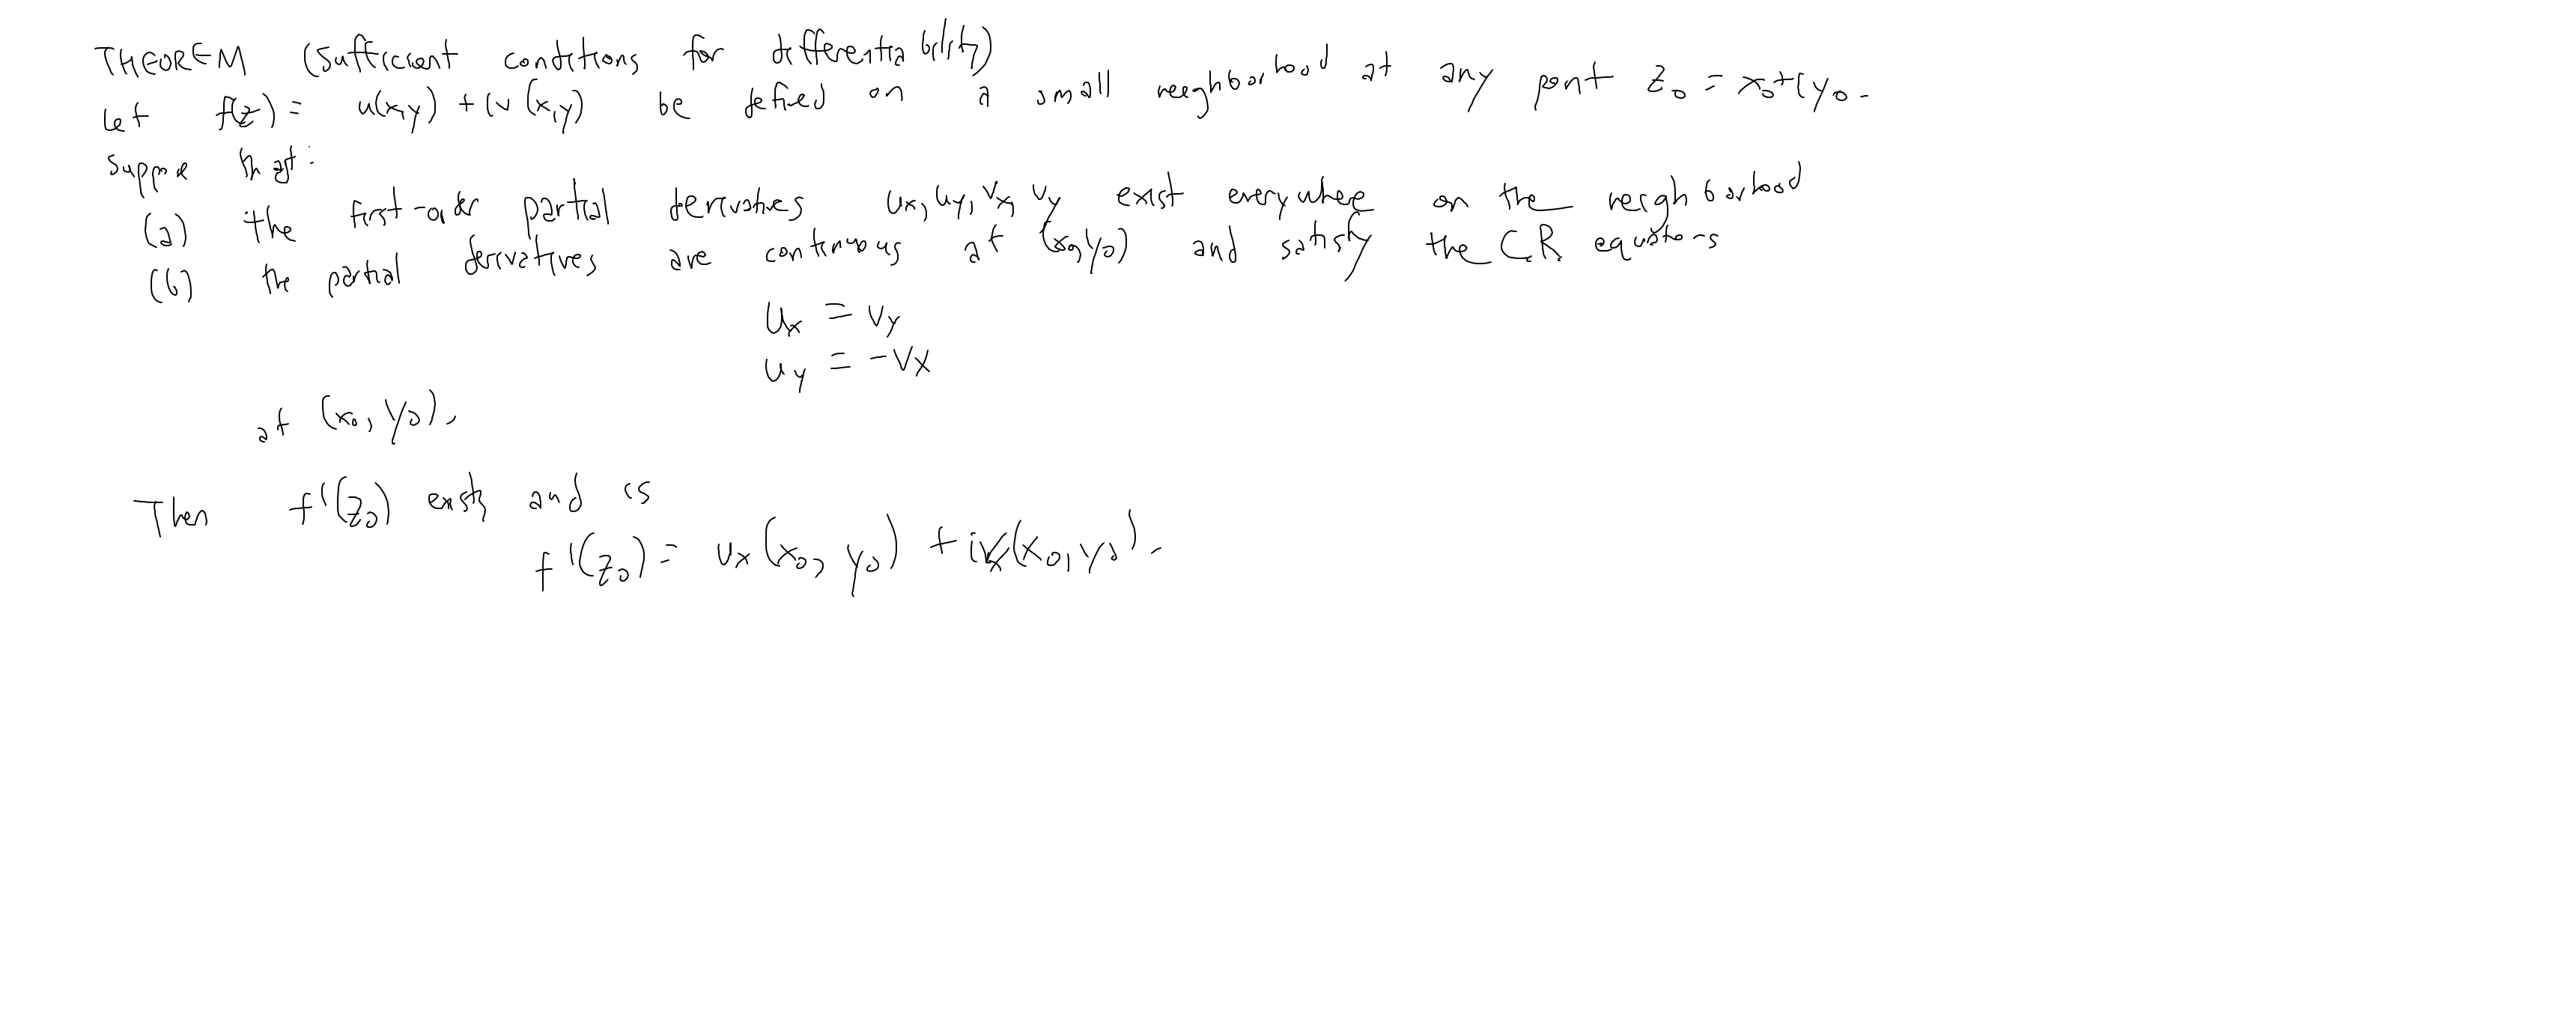 THEOREM (Sufficient conditions for differentiability)
Let f(z) = u(x,y) + iv(x,y) be defined on a small neighborhood at any point z₀ = x₀+iy₀.
Suppose that:
(a) the first-order partial derivatives uₓ, u_y, vₓ, v_y exist everywhere on the neighborhood
(b) the partial derivatives are continuous at (x₀,y₀) and satisfy the CR equations
uₓ = v_y
u_y = -vₓ
at (x₀, y₀).
Then f'(z₀) exists and is
f'(z₀) = uₓ(x₀, y₀) + ivₓ(x₀, y₀).